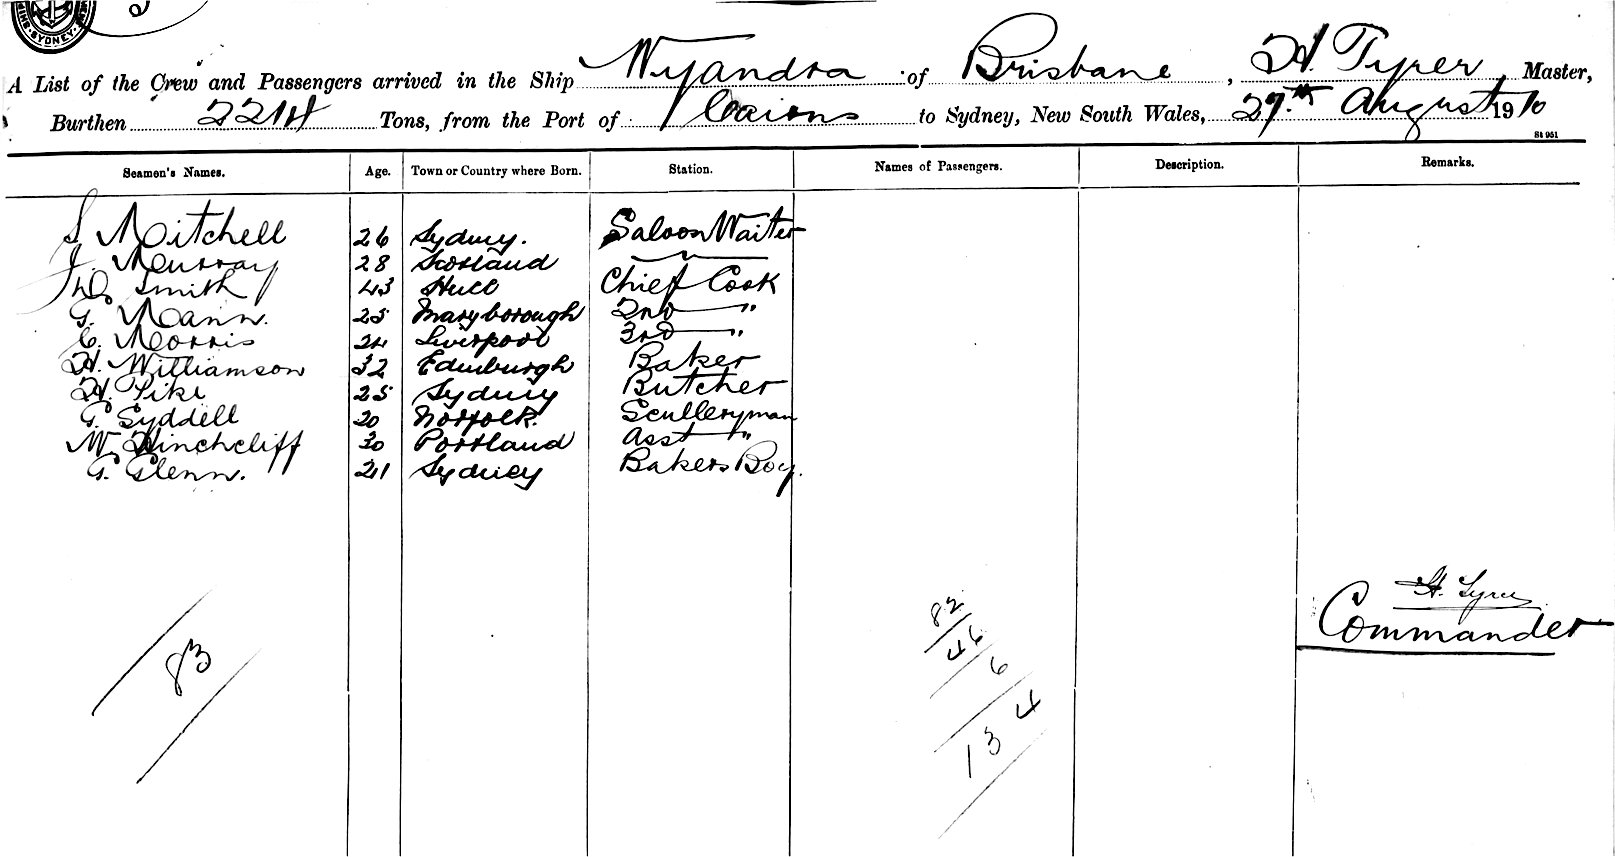 SYDNEY
A List of the Crew and Passengers arrived in the Ship Wyandra of Brisbane, H. Tyrer Master,
Burthen Tons, from the Port of Cairns to Sydney, New South Wales, 27th August 1910
St 951
Seamen's Names. Age. Town or Country where Born. Station. Names of Passengers. Description. Remarks.
S Mitchell 26 Sydney. Saloon Waiter
J. Murray 28 Scotland "
Smith 43 Hull Chief Cook
G. Mann. 25 Maryborough 2nd "
C. Morris 24 Liverpool 3rd "
H. Williamson 32 Edinburgh Baker
H. Pike 25 Sydney Butcher
G. Syddell 20 Norfolk. Sculleryman
W. Hinchcliff 30 Portland Asst "
G. Glenn. 21 Sydney Bakers Boy.
H. Tyrer
Commander
83
82
46
6
134